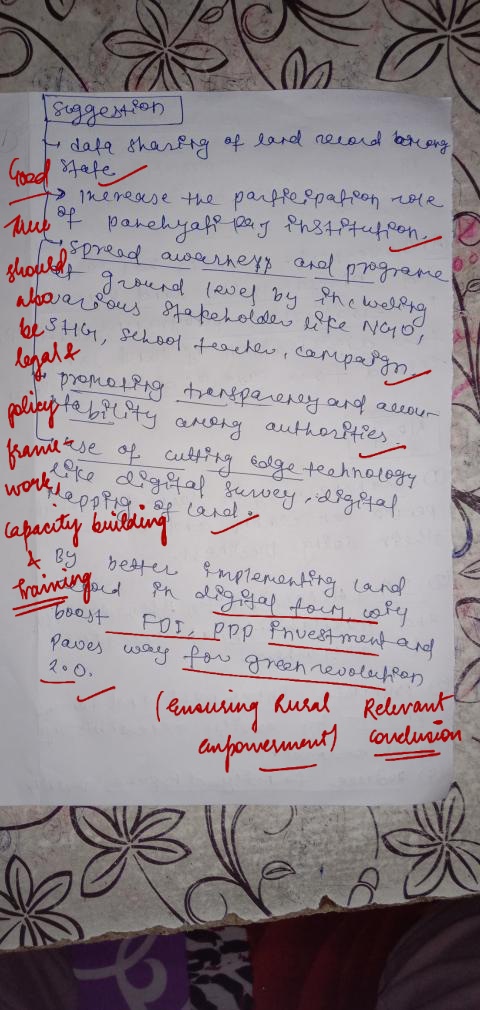 Suggestion
→ data sharing of land record among
state
→ increase the participation role
of panchyati Raj institution.
→ spread awarness and programe
at ground level by including
various stakeholder like NGO,
SHG, school teacher, campaign.
→ promoting transparency and accoun-
tability among authorities.
→ use of cutting edge technology
like digital survey, digital
mapping of land.
By better implementing land
record in digital form, will
boost FDI, PPP investment and
paves way for green revolution
2.0.
Good
There
should
also
be
legal &
policy
frame-
work,
capacity building
&
training
(Ensuring Rural
empowerment)
Relevant
conclusion